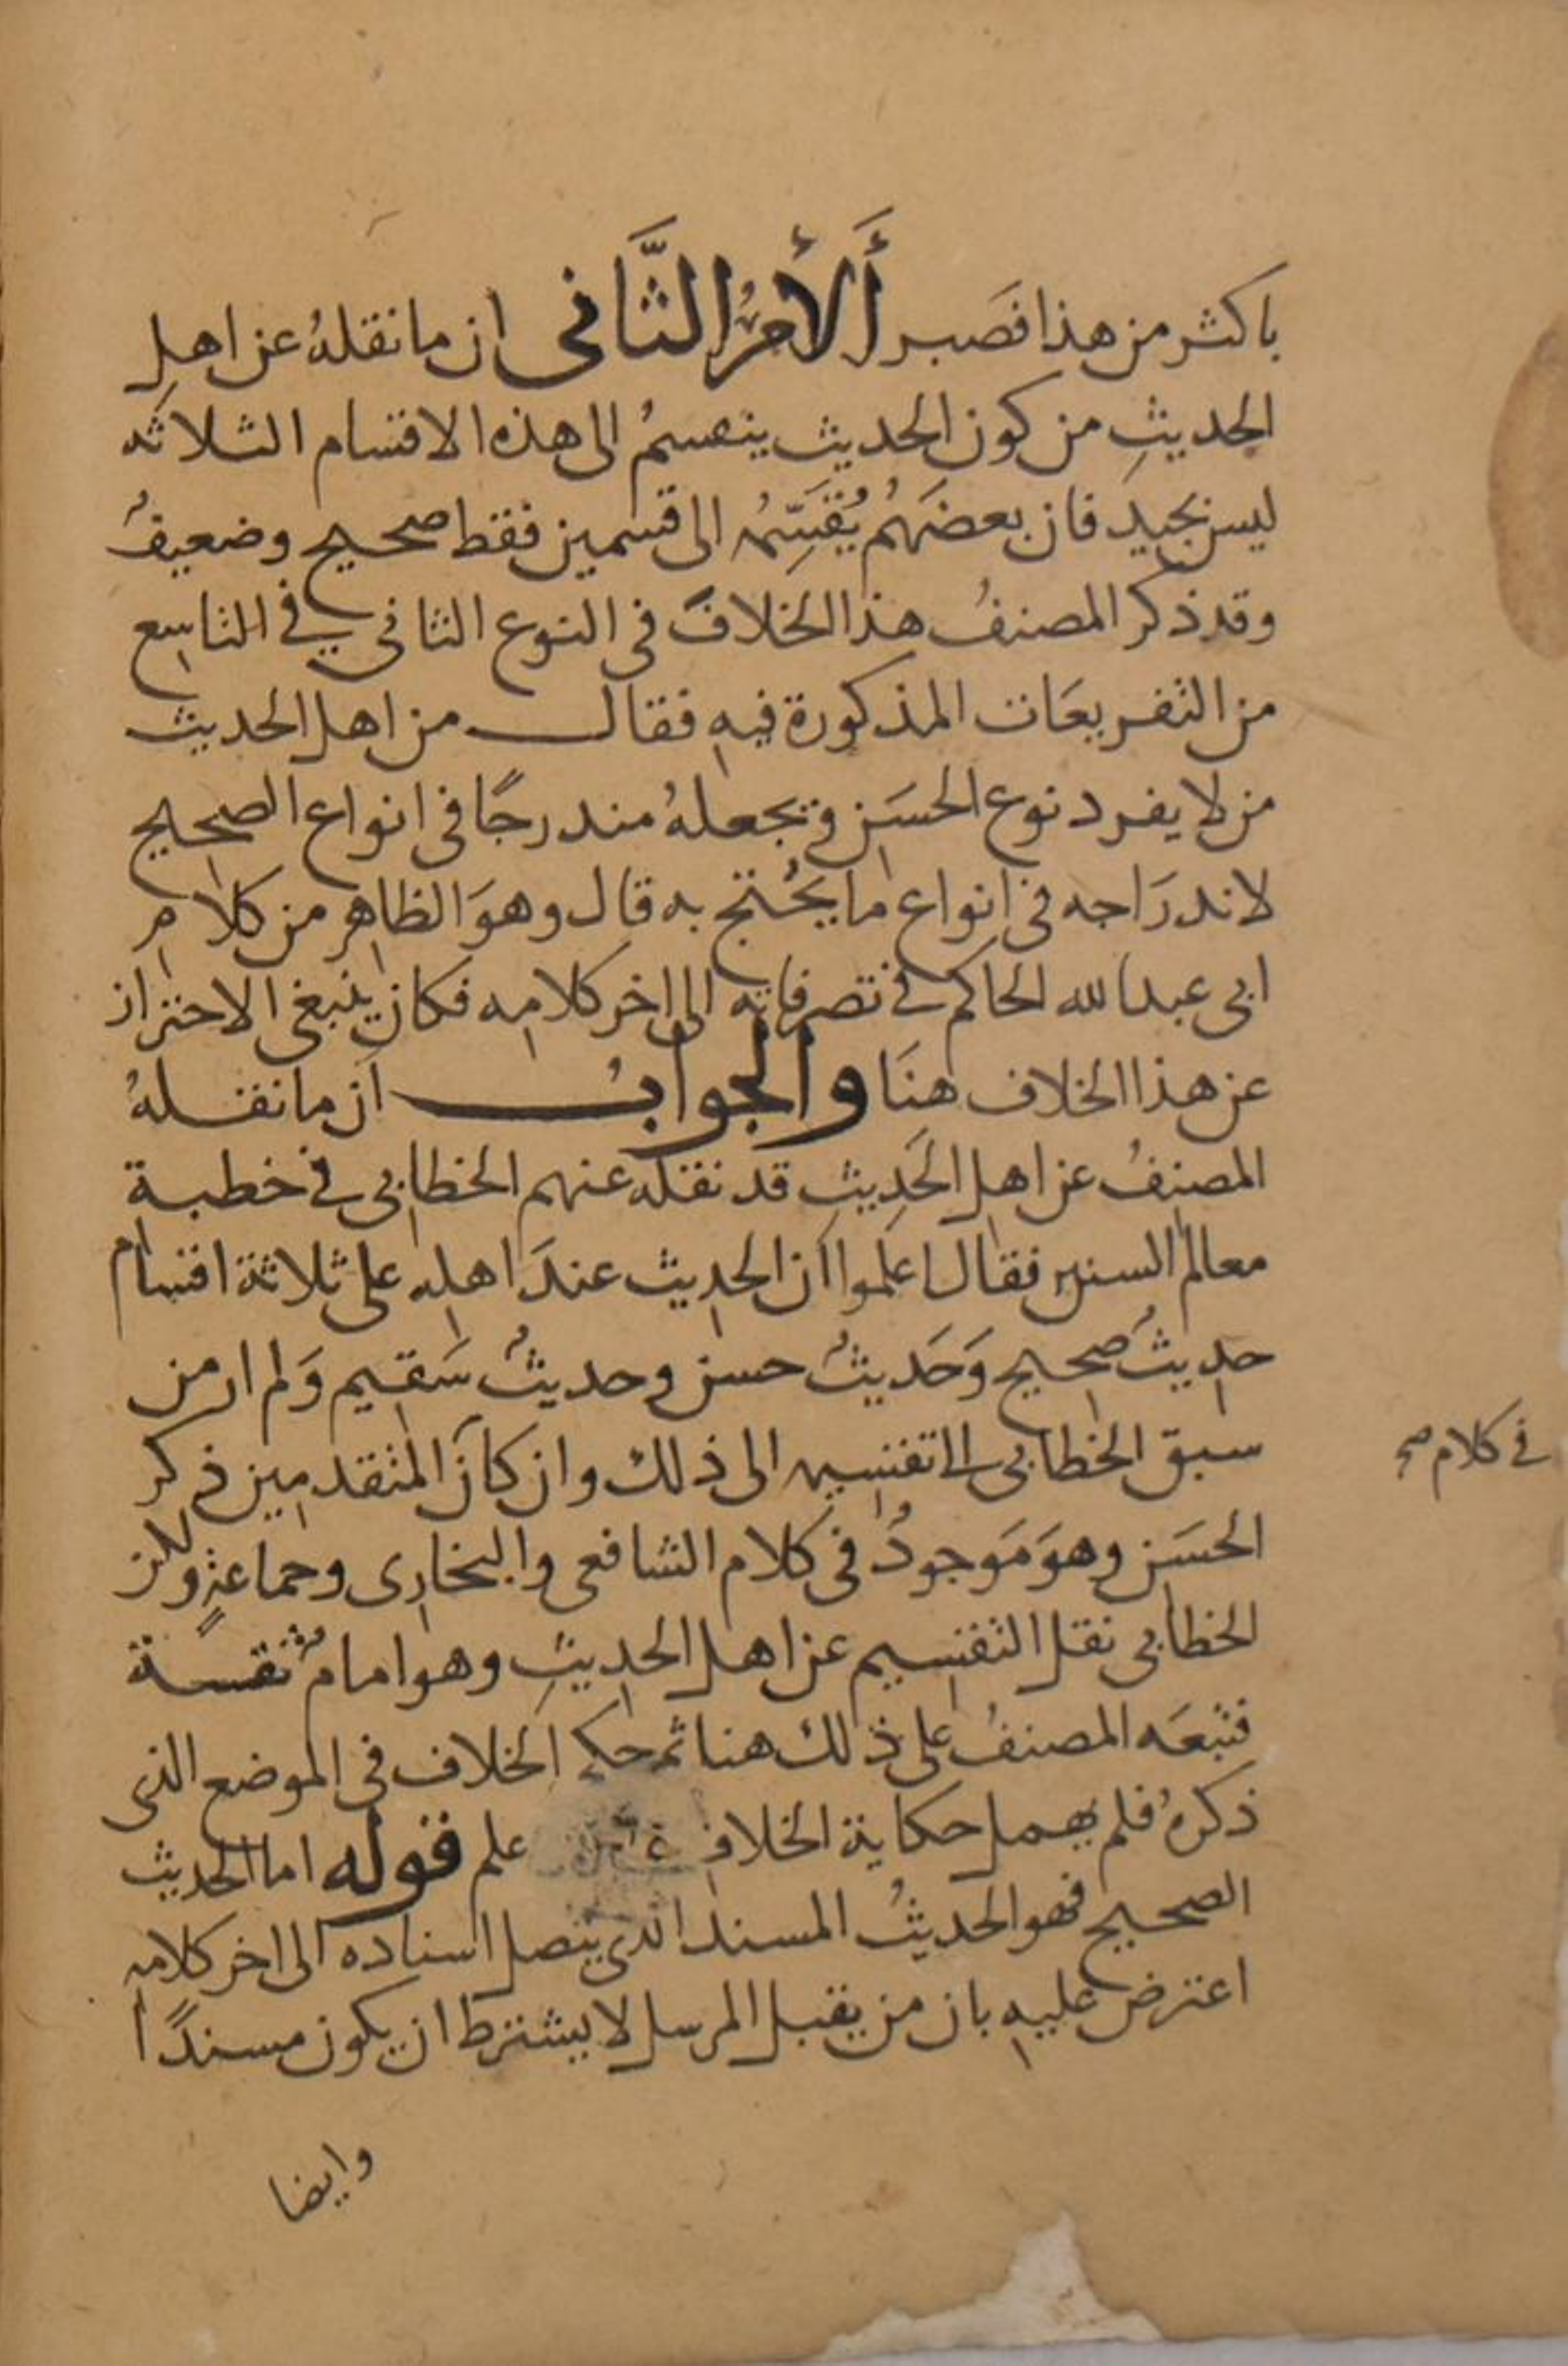 باكثر من هذا فصبر أَلأَمْرُ الثَّانى ان ما نقلهُ عن اهلِ
الحديثِ من كون الحديث ينقسمُ الى هذه الاقسام الثلاثه
ليس بجيد فان بعضَهُم يُقَسِّمُه الى قسمين فقط صحيح وضعيفُ
وقد ذكر المصنفُ هذا الخلافَ فى النوع الثانى فى التاسع
من التفريعَات المذكورة فيهِ فقال من اهل الحديث
من لا يفرد نوع الحسَن ويجعلهُ مندرجًا فى انواع الصحيح
لاندرَاجه فى انواع ما يحُتج به قال وهوَ الظاهر من كلامِ
ابى عبد الله الحاكم فى تصرفاته الى اخر كلامه فكان ينبغى الاحتراز
عن هذا الخلاف هنَا والجوابُ اَن ما نقلهُ
المصنفُ عن اهل الحَدِيثِ قد نقله عنهم الخطابى فى خطبة
معالم السنن فقال اعلموا اَن الحديث عندَ اهله على ثلاثة اقسام
حديثُ صحيح وَحَديثُ حسن وحديثُ سَقيم وَلم ار من
سبق الخطابى الى تقسيمه الى ذلك وان كاَن المتقدمين ذكر
فى كلام صح
الحسَن وهوَ مَوجودُ فى كلام الشافعى والبخارى وجماعةٍ ولكن
الخطابى نقل التقسيم عن اهل الحديثِ وهو امامُ ثقة
فتبعَه المصنفُ على ذلك هنا ثم حكى الخلاف فى الموضع الذى
ذكرهُ فلم يهمل حكاية الخلاف علم قوله اما الحديث
الصحيح فهو الحديثُ المسند الذى يتصل اسناده الى اخر كلامه
اعترض عليهِ بان من يقبل المرسل لا يشترط ان يكون مسندًا
وايضا